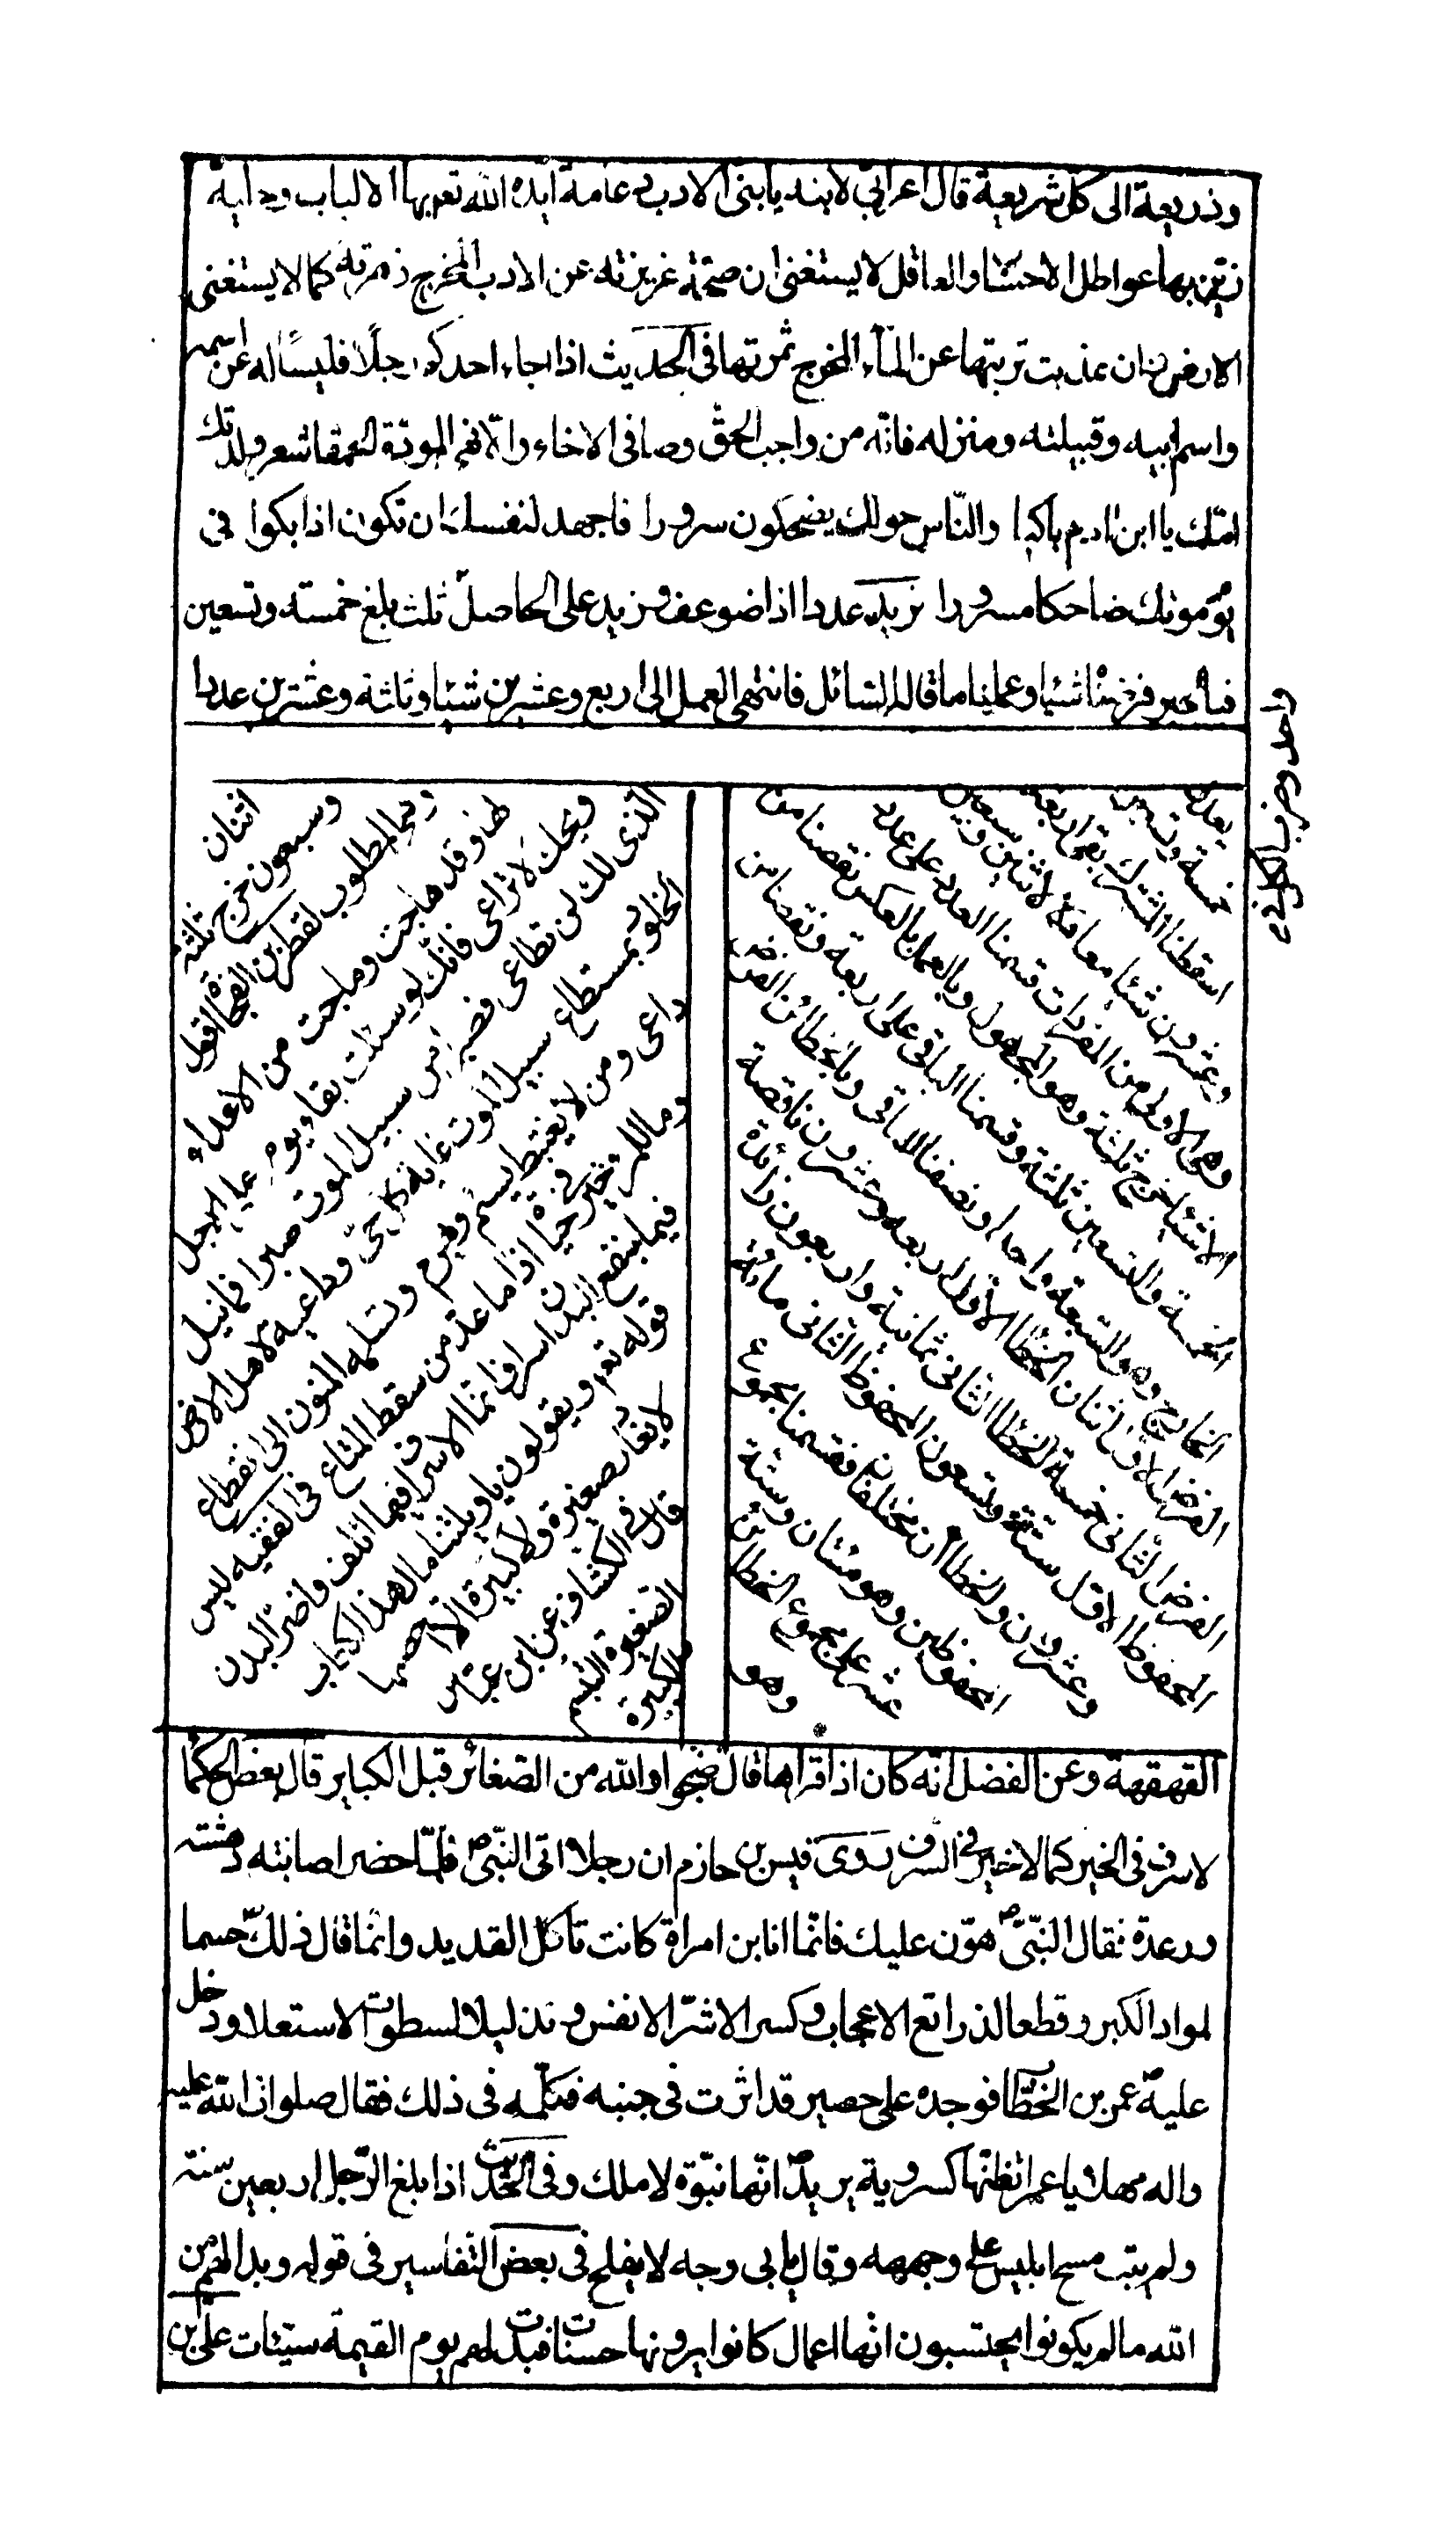 وذريعة الى كل شريعة قال اعرابي لابنه يا بني الادب دعامة ايده الله تعم بها الالباب وحلية
زين بها عواطل الاحساب والعاقل لا يستغنى ان صحته غريزته عن الادب المخرج زهرته كما لا يستغنى
الارض وان عذبت تربتها عن الماء المخرج ثمرتها في الحديث اذا جاء احدكم رجلا فليساله عن اسمه
واسم ابيه وقبيلته ومنزله فانه من واجب الحق وصافى الاخاء والا فهى المودة الحمقا شعر ولدتك
امك يا ابن ادم باكيا والناس حولك يضحكون سرورا فاجهد لنفسك ان تكون اذا بكوا في
يوم موتك ضاحكا مسرورا نريد عددا اذا ضوعف وزيد على الحاصل ثلث بلغ خمسة وتسعين
فرضنا شيئا وعملنا ما قاله السائل فانتهى العمل الى اربع وعشرين شيئا وثلثة وعشرين عددا
واحد وضرب
يعدل
خمسة وتسعين
اسقطنا المشترك بقى اربعة
وعشرون شيئا معادلة لاثنين وسبعين
وهى الاولى من المفردات قسمنا العدد على عدد
الاشيا خرج ثلثة وهو المجهول وبالعمل بالعكس نقصنا من
الخمسة والتسعين ثلثة وقسمنا الباقى على اربعة ونقصنا من
الخارج وهو التسعة واحدا ونصفنا الباقى وبالخطائن الفرض
الفرض الاول اثنان الخطأ الاول اربعة وعشرون ناقصة
الفرض الثانى خمسة الخطا الثانى ثمانية واربعون زائدة
المحفوظ الاول ستة وتسعون المحفوظ الثانى مائة
وعشرون والخطاأن مختلفان فقسمنا مجموع
المحفوظين وهو مئتان وستة
عشر على مجموع الخطائن
وهو
اثنان
وسبعون خرج ثلثة
وهى المطلوب لقطرى بن الفجاءة اقول
لها وقد هاجت وماجت من الاعداء
ويحك لا تراعى فانك لو سئلت بقاء يوم على الاجل
الذى لك لن تطاعى فصبرا في سبيل الموت صبرا فما نيل
الخلود بمستطاع سبيل الموت غاية كل حى وداعية لاهل الارض
داعى ومن لا يغتبط يسئم ويهرم وتسلمه المنون الى انقطاع
وما للمرء خير في حيا اذا ما عد من سقط المتاع في الفقيه ليس
فيما ينفع البدن اسراف انما الاسراف فيما اتلف واضر البدن
قوله تعم ويقولون يا ويلتنا ما لهذا الكتاب
لا يغادر صغيرة ولا كبيرة الا احصيها
قال في الكشاف عن ابن عباس
الصغيرة التبسم
والكبيرة
القهقهة وعن الفضل انه كان اذا قراها قال ضجوا والله من الصغائر قبل الكباير قال بعض الحكما
لا سرف في الخير كما لا خير في السرف روى قيس بن حازم ان رجلا اتى النبي ص فلما حضر اصابته دهشته
ورعدة فقال النبي ص هون عليك فانما انا بن امراة كانت تاكل القديد وانما قال ذلك ص حسما
لمواد الكبر وقطعا لذرائع الاعجاب وكسر الاشر الانفس وتذليلا لسطوت الاستعلا ودخل
عليه ص عمر بن الخطاب فوجده على حصير قد اثرت في جنبه فكلمه في ذلك فقال صلوات الله عليه
واله مهلا يا عمر اتظنها كسروية يريد ص انها نبوة لا ملك وفي الحديث اذا بلغ الرجل اربعين سنة
ولم يتب مسح ابليس على وجهه وقال بابى وجه لا يفلح في بعض التفاسير في قوله وبدا لهم من
الله ما لم يكونوا يحتسبون انها اعمال كانوا يرونها حسنات فبدت لهم يوم القيمة سيئات على بن